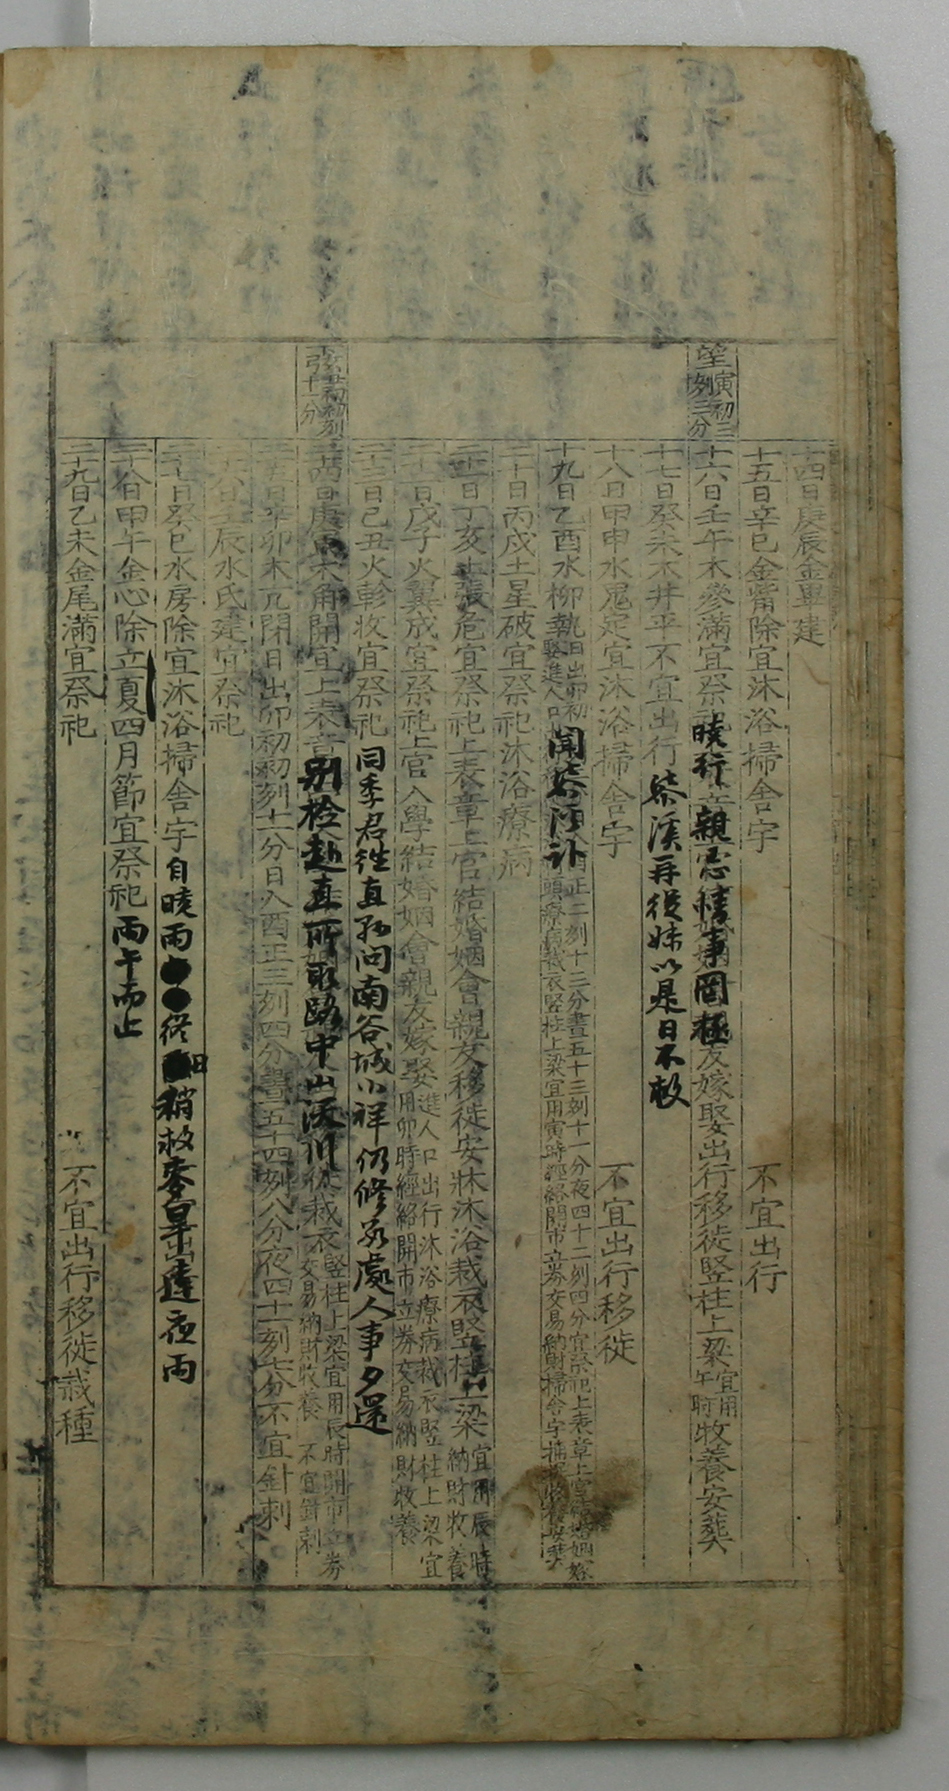 十四日庚辰金畢建
十五日辛巳金觜除宜沐浴掃舍宇 不宜出行
望寅初三刻三分
十六日壬午木參滿宜祭祀 曉行親忌情事罔極 友嫁娶出行移徙竪柱上梁宜用午時牧養安葬
十七日癸未木井平不宜出行 柴溪再從妹以是日不救
十八日甲申水鬼定宜沐浴掃舍宇 不宜出行移徙
十九日乙酉水柳執日出卯初 正二刻十三分晝五十三刻十一分夜四十二刻四分宜祭祀上表章上官結婚姻嫁
娶進人口 療病裁衣竪柱上梁宜用寅時經絡開市立券交易納財掃舍宇
聞柴溪訃
二十日丙戌土星破宜祭祀沐浴療病
二十一日丁亥土張危宜祭祀上表章上官結婚姻會親友移徙安牀沐浴裁衣竪柱上梁宜用辰時納財牧養
二十二日戊子火翼成宜祭祀上官入學結婚姻會親友嫁娶進人口出行沐浴療病裁衣竪柱上梁宜用卯時經絡開市立券交易納財牧養
二十三日己丑火軫收宜祭祀 同季君往直 問南谷城小祥仍修 處人事夕還
下弦丑初初刻十一分
二十四日庚寅木角開宜上表章 別栓赴直所取路中山 川 裁衣竪柱上梁宜用辰時開市立券交易納財牧養 不宜針刺
二十五日辛卯木亢閉日出卯初初刻十一分日入酉正三刻四分晝五十四刻八分夜四十一刻七分不宜針刺
二十六日壬辰水氐建宜祭祀
二十七日癸巳水房除宜沐浴掃舍宇 自曉雨 終日稍救麥旱 達夜雨
二十八日甲午金心除立夏四月節宜祭祀 雨午而止
二十九日乙未金尾滿宜祭祀 不宜出行移徙栽種